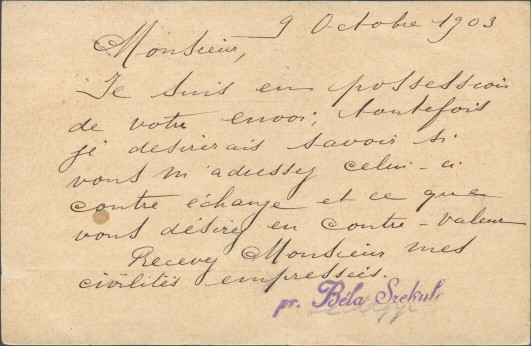 9 Octobre 1903
Monsieur,
Je suis en possession
de votre envoi; toutefois
je desirerais savoir si
vous m'adressez celui-ci
contre échange et ce que
vous désirez en contre-valeur
Recevez Monsieur mes
civilités empressées.
pr. Béla Szekula